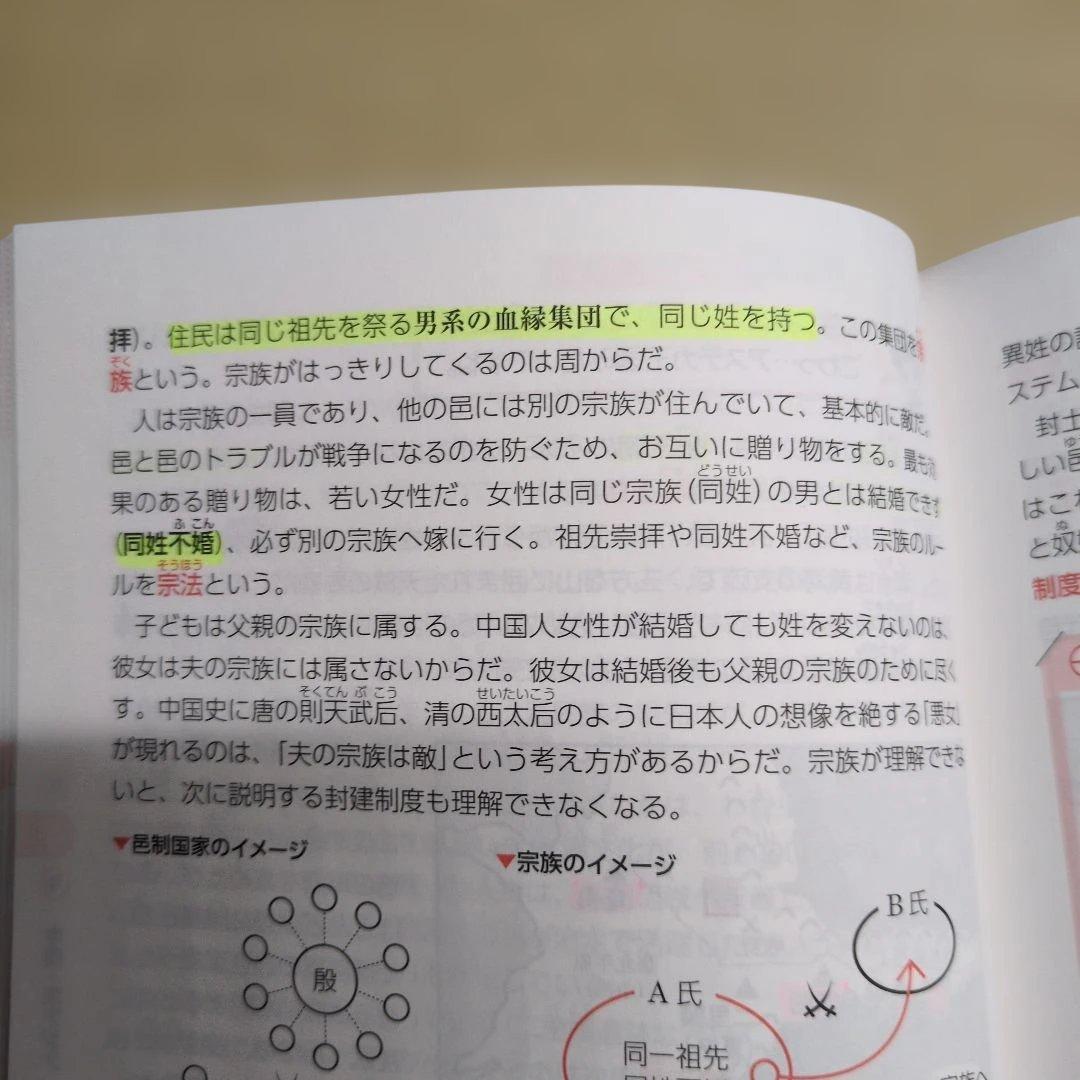 拝)。住民は同じ祖先を祭る男系の血縁集団で、同じ姓を持つ。この集団を
ぞく
族という。宗族がはっきりしてくるのは周からだ。
人は宗族の一員であり、他の邑には別の宗族が住んでいて、基本的に敵だ。
邑と邑のトラブルが戦争になるのを防ぐため、お互いに贈り物をする。最も効
どうせい
果のある贈り物は、若い女性だ。女性は同じ宗族(同姓)の男とは結婚できず
ふこん
(同姓不婚)、必ず別の宗族へ嫁に行く。祖先崇拝や同姓不婚など、宗族のルー
そうほう
ルを宗法という。
子どもは父親の宗族に属する。中国人女性が結婚しても姓を変えないのは、
彼女は夫の宗族には属さないからだ。彼女は結婚後も父親の宗族のために尽く
そくてんぶこう せいたいこう
す。中国史に唐の則天武后、清の西太后のように日本人の想像を絶する「悪女」
が現れるのは、「夫の宗族は敵」という考え方があるからだ。宗族が理解できな
いと、次に説明する封建制度も理解できなくなる。
▼邑制国家のイメージ
▼宗族のイメージ
殷
B氏
A氏
同一祖先
異姓の
ステム
封土
しい邑
はこ
と奴
制度